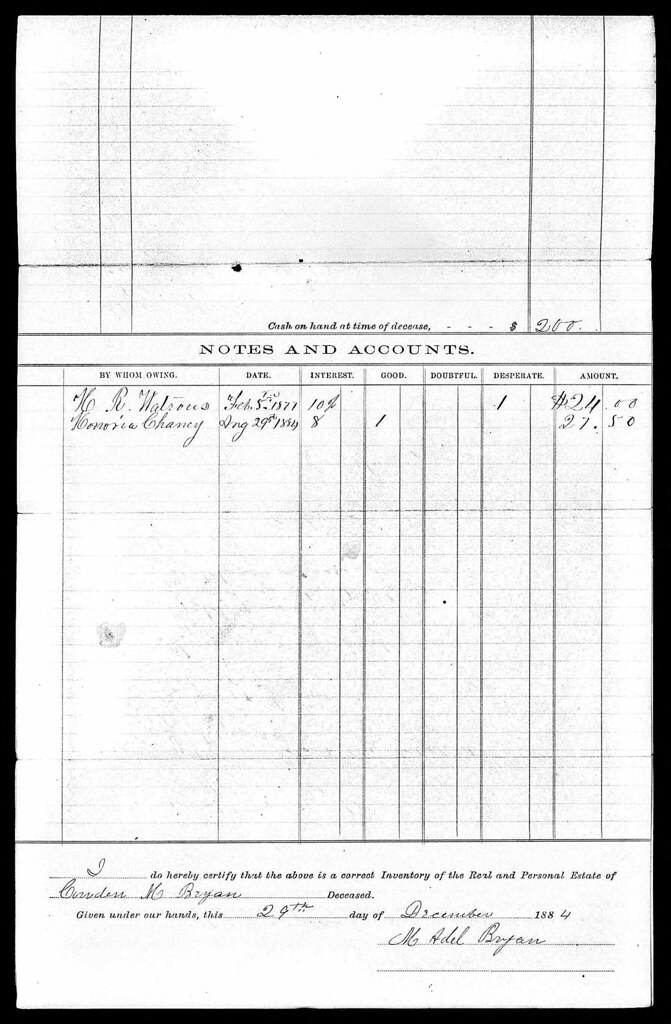 Cash on hand at time of decease, - - - $ 200.
NOTES AND ACCOUNTS.
BY WHOM OWING. DATE. INTEREST. GOOD. DOUBTFUL. DESPERATE. AMOUNT.
H R. Watrous Feb. 5th 1877 10% 1 $24.00
Honoria Chaney Aug 29th 1884 8 1 27.50
I do hereby certify that the above is a correct Inventory of the Real and Personal Estate of
Cowden M Bryan Deceased.
Given under our hands, this 29th day of December 1884
M Adel Bryan